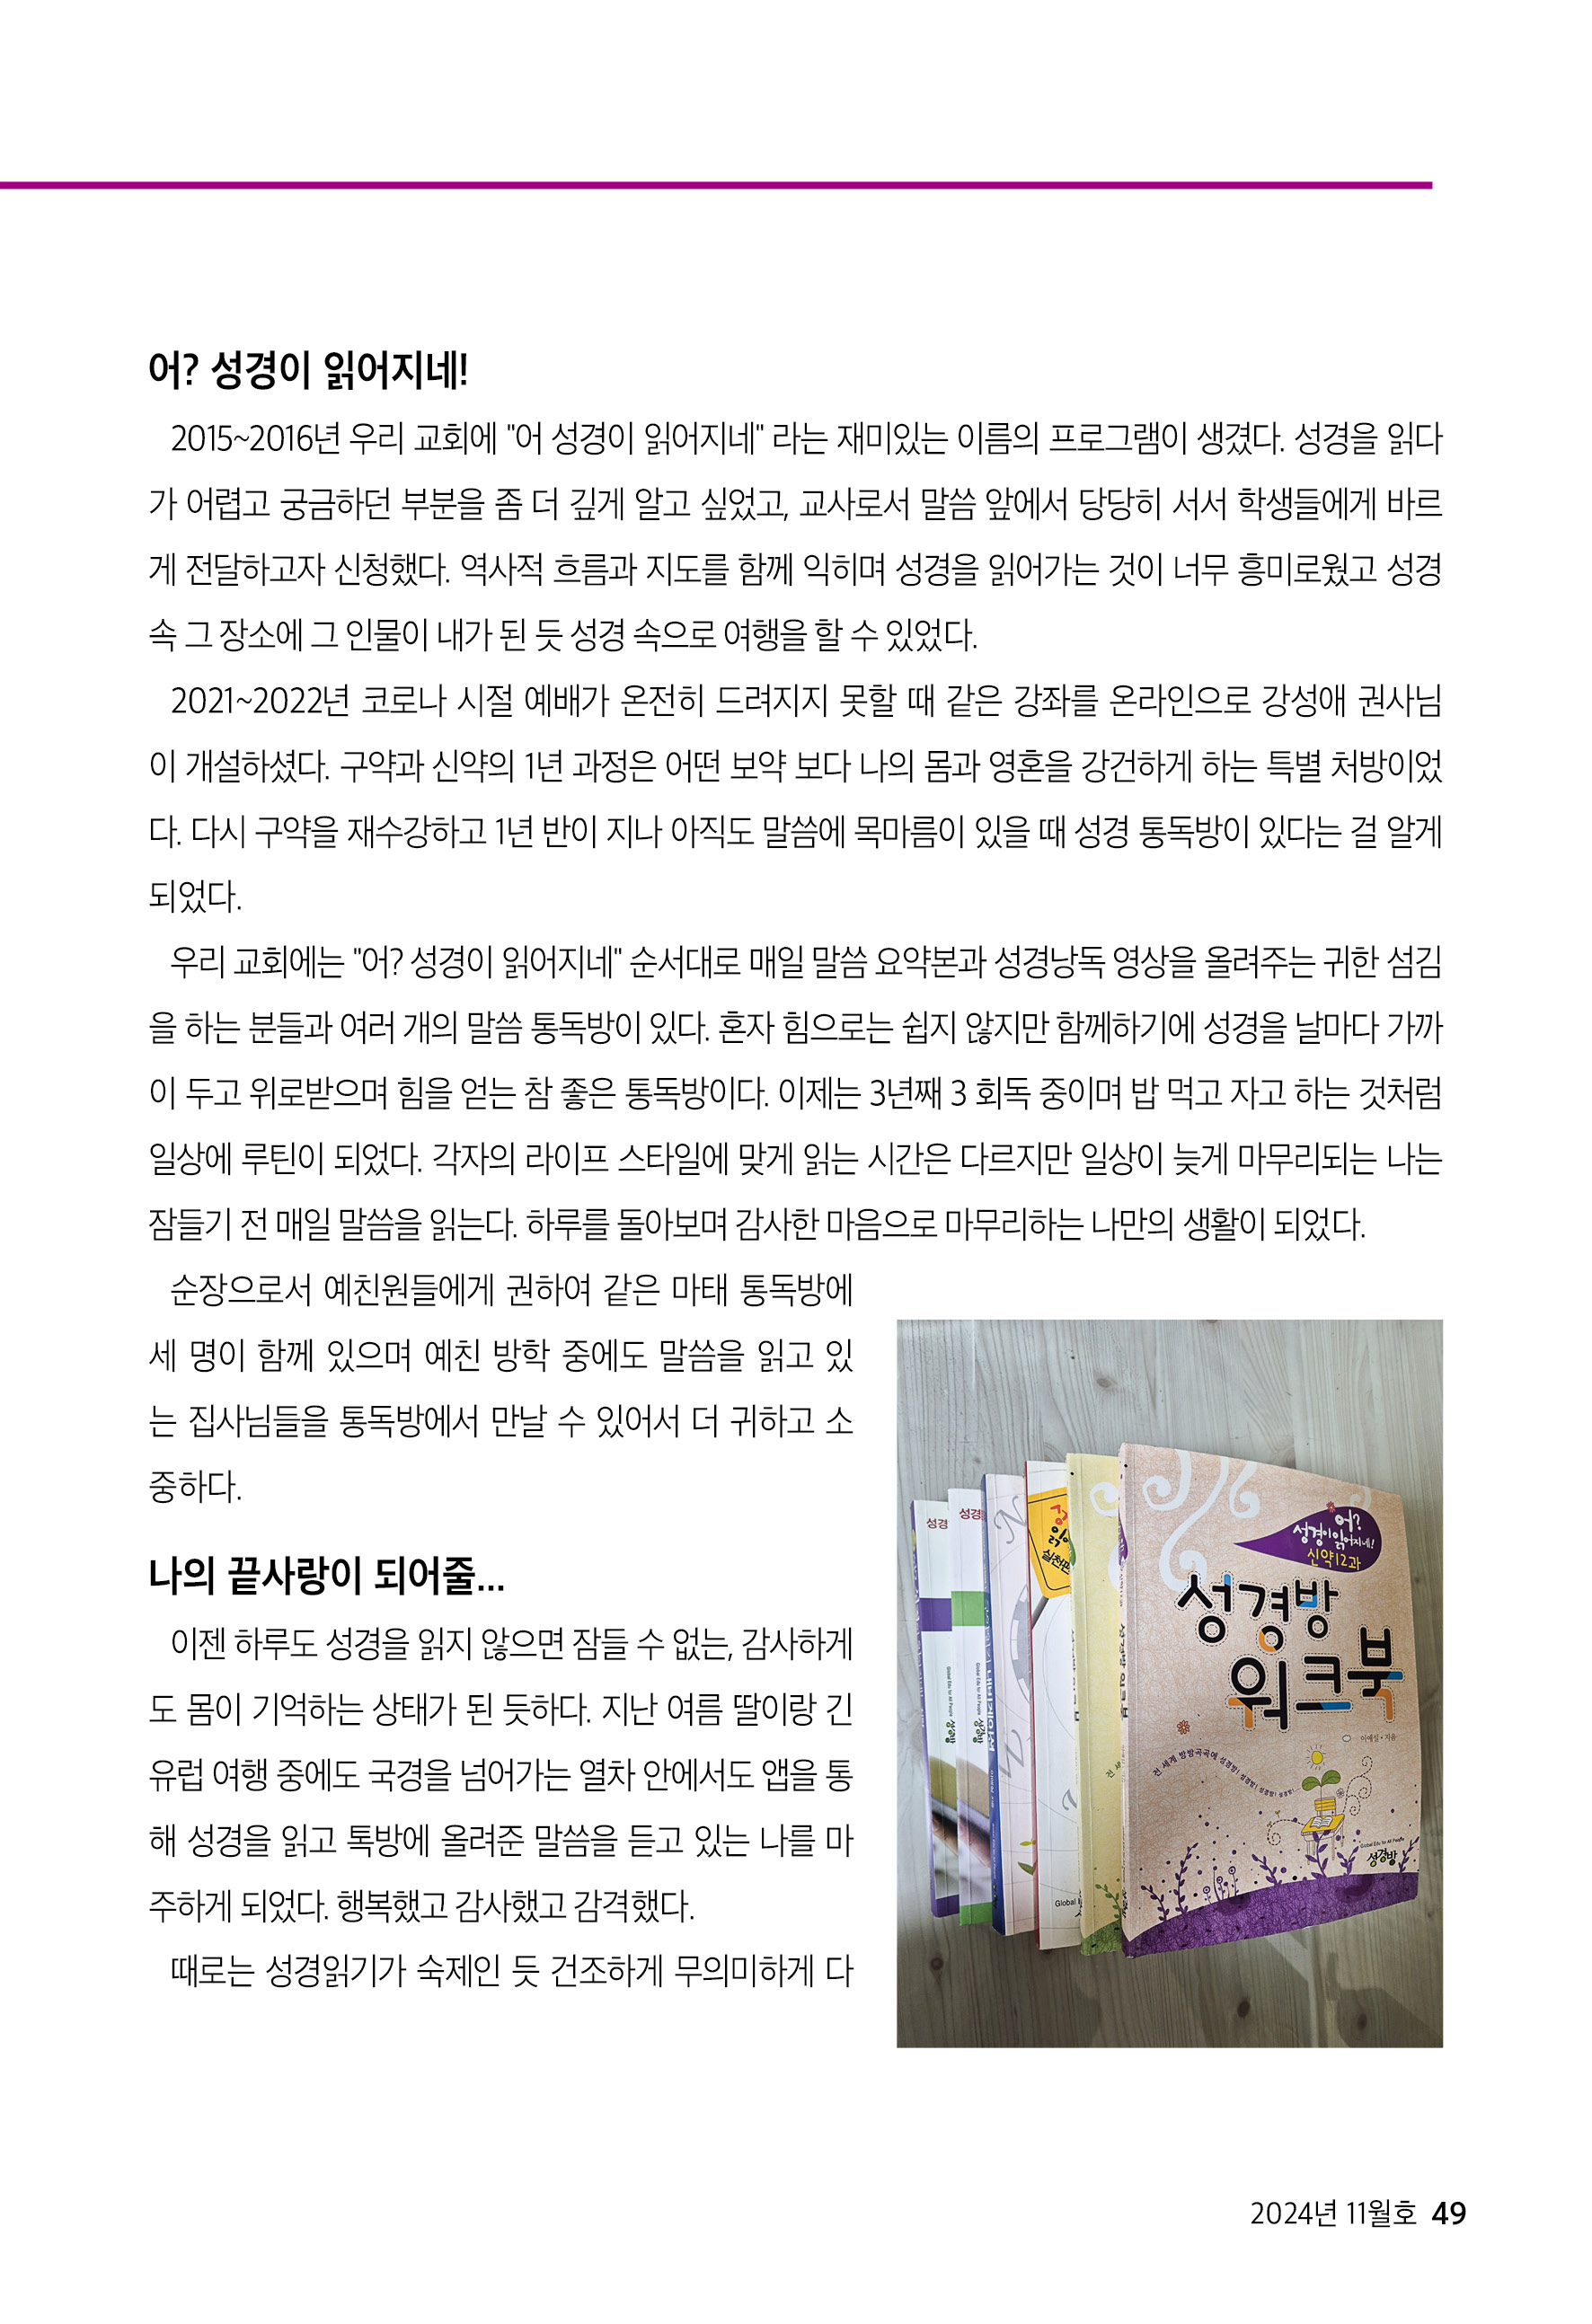 어? 성경이 읽어지네!
2015~2016년 우리 교회에 "어 성경이 읽어지네" 라는 재미있는 이름의 프로그램이 생겼다. 성경을 읽다
가 어렵고 궁금하던 부분을 좀 더 깊게 알고 싶었고, 교사로서 말씀 앞에서 당당히 서서 학생들에게 바르
게 전달하고자 신청했다. 역사적 흐름과 지도를 함께 익히며 성경을 읽어가는 것이 너무 흥미로웠고 성경
속 그 장소에 그 인물이 내가 된 듯 성경 속으로 여행을 할 수 있었다.
2021~2022년 코로나 시절 예배가 온전히 드려지지 못할 때 같은 강좌를 온라인으로 강성애 권사님
이 개설하셨다. 구약과 신약의 1년 과정은 어떤 보약 보다 나의 몸과 영혼을 강건하게 하는 특별 처방이었
다. 다시 구약을 재수강하고 1년 반이 지나 아직도 말씀에 목마름이 있을 때 성경 통독방이 있다는 걸 알게
되었다.
우리 교회에는 "어? 성경이 읽어지네" 순서대로 매일 말씀 요약본과 성경낭독 영상을 올려주는 귀한 섬김
을 하는 분들과 여러 개의 말씀 통독방이 있다. 혼자 힘으로는 쉽지 않지만 함께하기에 성경을 날마다 가까
이 두고 위로받으며 힘을 얻는 참 좋은 통독방이다. 이제는 3년째 3 회독 중이며 밥 먹고 자고 하는 것처럼
일상에 루틴이 되었다. 각자의 라이프 스타일에 맞게 읽는 시간은 다르지만 일상이 늦게 마무리되는 나는
잠들기 전 매일 말씀을 읽는다. 하루를 돌아보며 감사한 마음으로 마무리하는 나만의 생활이 되었다.
순장으로서 예친원들에게 권하여 같은 마태 통독방에
세 명이 함께 있으며 예친 방학 중에도 말씀을 읽고 있
는 집사님들을 통독방에서 만날 수 있어서 더 귀하고 소
중하다.
나의 끝사랑이 되어줄...
이젠 하루도 성경을 읽지 않으면 잠들 수 없는, 감사하게
도 몸이 기억하는 상태가 된 듯하다. 지난 여름 딸이랑 긴
유럽 여행 중에도 국경을 넘어가는 열차 안에서도 앱을 통
해 성경을 읽고 톡방에 올려준 말씀을 듣고 있는 나를 마
주하게 되었다. 행복했고 감사했고 감격했다.
때로는 성경읽기가 숙제인 듯 건조하게 무의미하게 다
성경
성경
실전편
어?
성경이 읽어지네!
신약12과
성경방
워크북
이애실·지음
전 세계 방방곡곡에 성경방! 성경방! 성경방! 성경방!
Global Edu for All People
성경방
Global
2024년 11월호 49